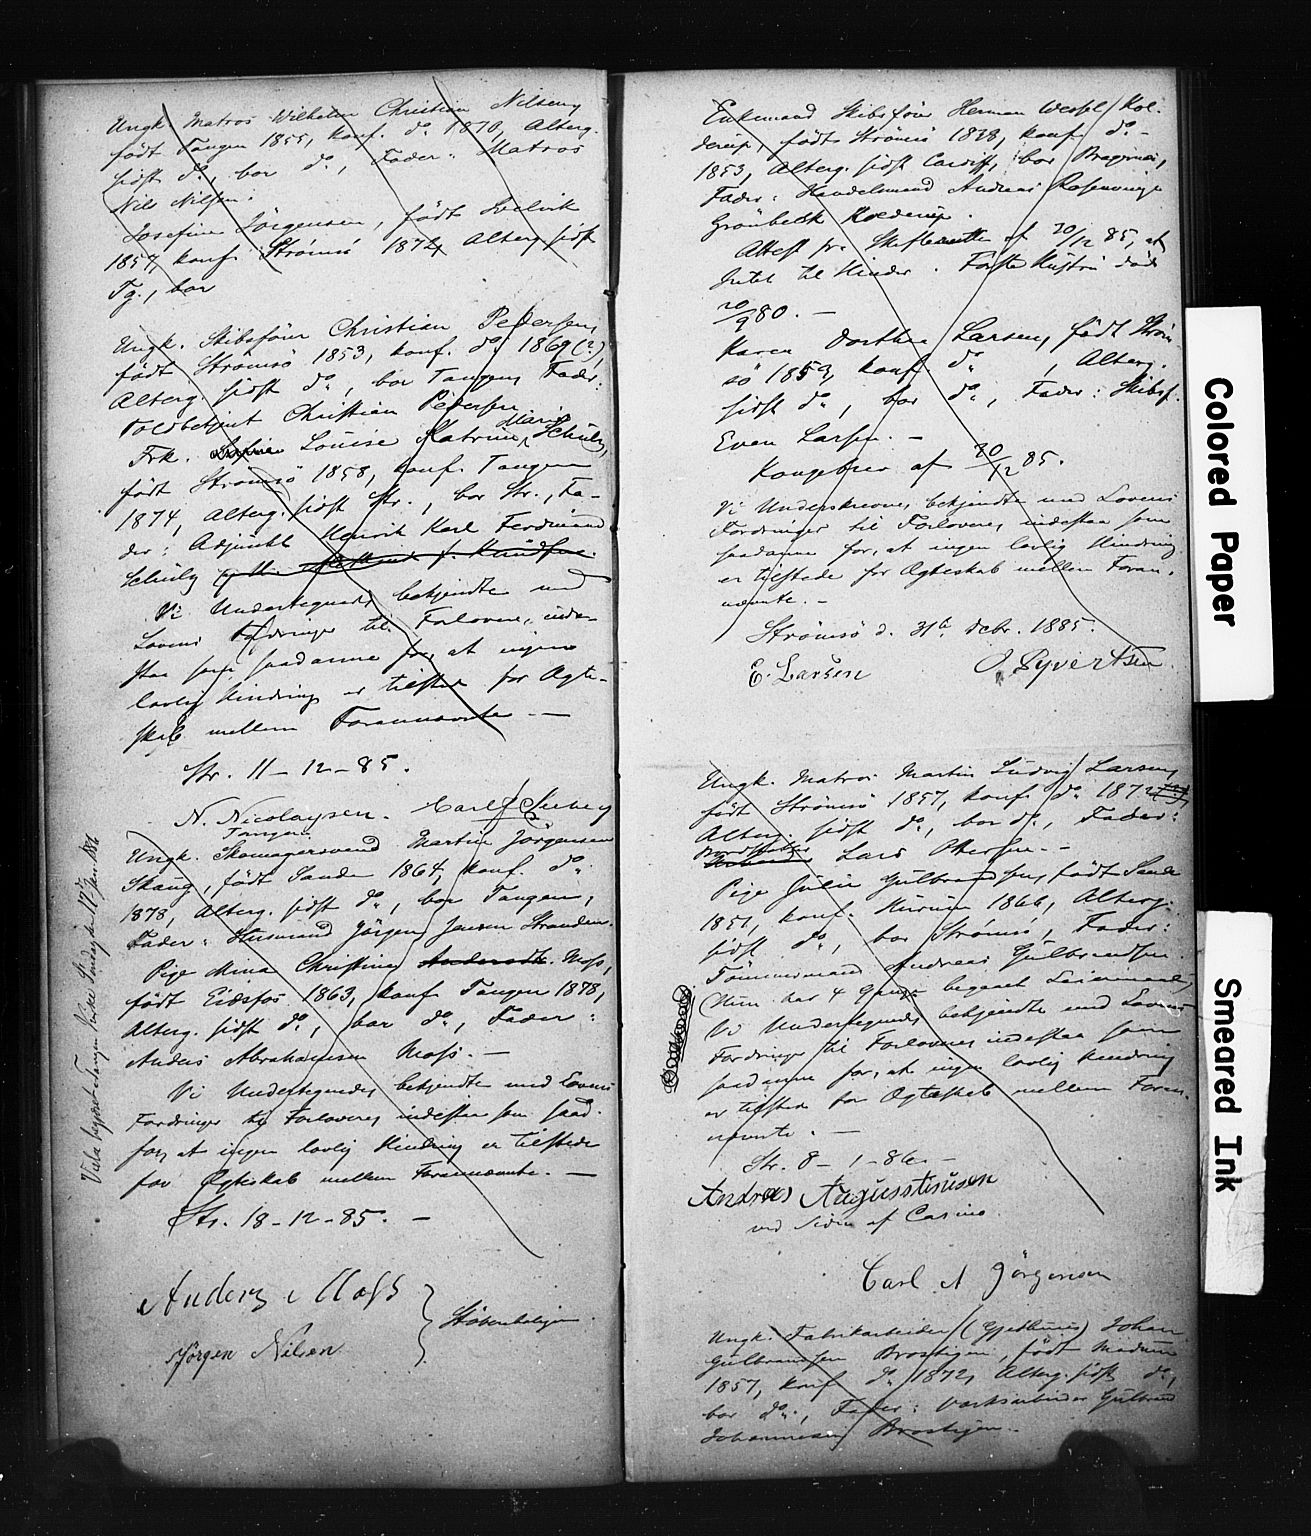 Ungk. Matros Wilhelm Christian Nilsen,
født Tangen 1855, konf. do 1870, Alterg.
sidst do, bor do, Fader: Matros
Nils Nilsen.
Josefine Jörgensen, født Svelvik
1857, konf. Strömsö 1874, Alterg. sidst
Tg., bor
Ungk. Skibsförer Christian Pedersen,
født Strömsö 1853, konf. do 1869(?),
Alterg. sidst do, bor Tangen, Fader:
Toldbetjent Christian Pedersen
Frk. Louise Katrine Marie Schulz,
født Strömsö 1858, konf. Tangen
1874, Alterg. sidst Str., bor Str., Fa-
der: Adjunkt Henrik Karl Ferdinand
Schulz
Vi Undertegnede, bekjendte med
Lovens Fordringer til Forlovere, inde-
staa som saadanne for, at ingen
lovlig Hindring er tilstede for Ægte-
skab mellem Forannævnte. —
Str. 11-12-85.
N. Nicolaysen. Carl Seeberg
Tangen
Ungk. Skomagersvend Martin Jörgensen
Skaug, født Sande 1864, konf. do
1878, Alterg. sidst do, bor Tangen,
Fader: Husmand Jörgen Jensen Stranden.
Pige Mina Christine Andersdt. Moss,
født Eidsfos 1863, konf. Tangen 1878,
Alterg. sidst do, bor do, Fader:
Anders Abrahamsen Moss. —
Vi Undertegnede, bekjendte med Lovens
Fordringer til Forlovere, indestaa som saad.
for, at ingen lovlig Hindring er tilstede
for Ægteskab mellem Forannævnte. —
Str. 18-12-85. —
Anders Moss
Jörgen Nilsen
Viet Tangen Kirke Söndag den 17de Jan. 1886
Enkemand Skibsförer Herman Wessel Kol-
derup, født Strömsö 1838, konf. do
1853, Alterg. sidst Cardiff, bor Bragernæs,
Fader: Handelsmand Andreas Rosenvinge
Grönbeck Kolderup.
Attest fra Skifteretten af 30/12 85, at
Intet til Hinder. Förste Hustru död
20/9 80. —
Karen Dorthea Larsen, født Ström-
sö 1859, konf. do, Alterg.
sidst do, bor do, Fader: Skibsf.
Even Larsen. —
Kongebrev af 30/12 85.
Vi Underskrevne, bekjendte med Lovens
Fordringer til Forlovere, indestaa som
saadanne for, at ingen lovlig Hindring
er tilstede for Ægteskab mellem Foran-
nævnte. —
Strömsö d. 31te Decbr. 1885.
E. Larsen O. Syvertsen
Ungk. Matros Martin Ludvig Larsen,
født Strömsö 1857, konf. do 1872,
Alterg. sidst do, bor do, Fader:
Lars Ottersen. —
Pige Julie Gulbrandsen, født Sande
1851, konf. Hurum 1866, Alterg.
sidst do, bor Strömsö, Fader:
Tömmermand Andreas Gulbrandsen.
(Hun har 4 Gange begaaet Leiermaal)
Vi Undertegnede, bekjendte med Lovens
Fordringer til Forlovere, indestaa som
saadanne for, at ingen lovlig Hindring
er tilstede for Ægteskab mellem Foran-
nævnte. —
Str. 8-1-86. —
Andreas Augusstinusen
ved Siden af Casino.
Carl A Jörgensen
Ungk. Fabrikarbeider (Gjedhuus) Johan
Gulbrandsen Brostigen, født Modum
1857, konf. do 1872, Alterg. sidst do,
bor do, Fader: Værksarbeider Gulbrand
Johannesen Brostigen. —
Colored Paper
Smeared Ink